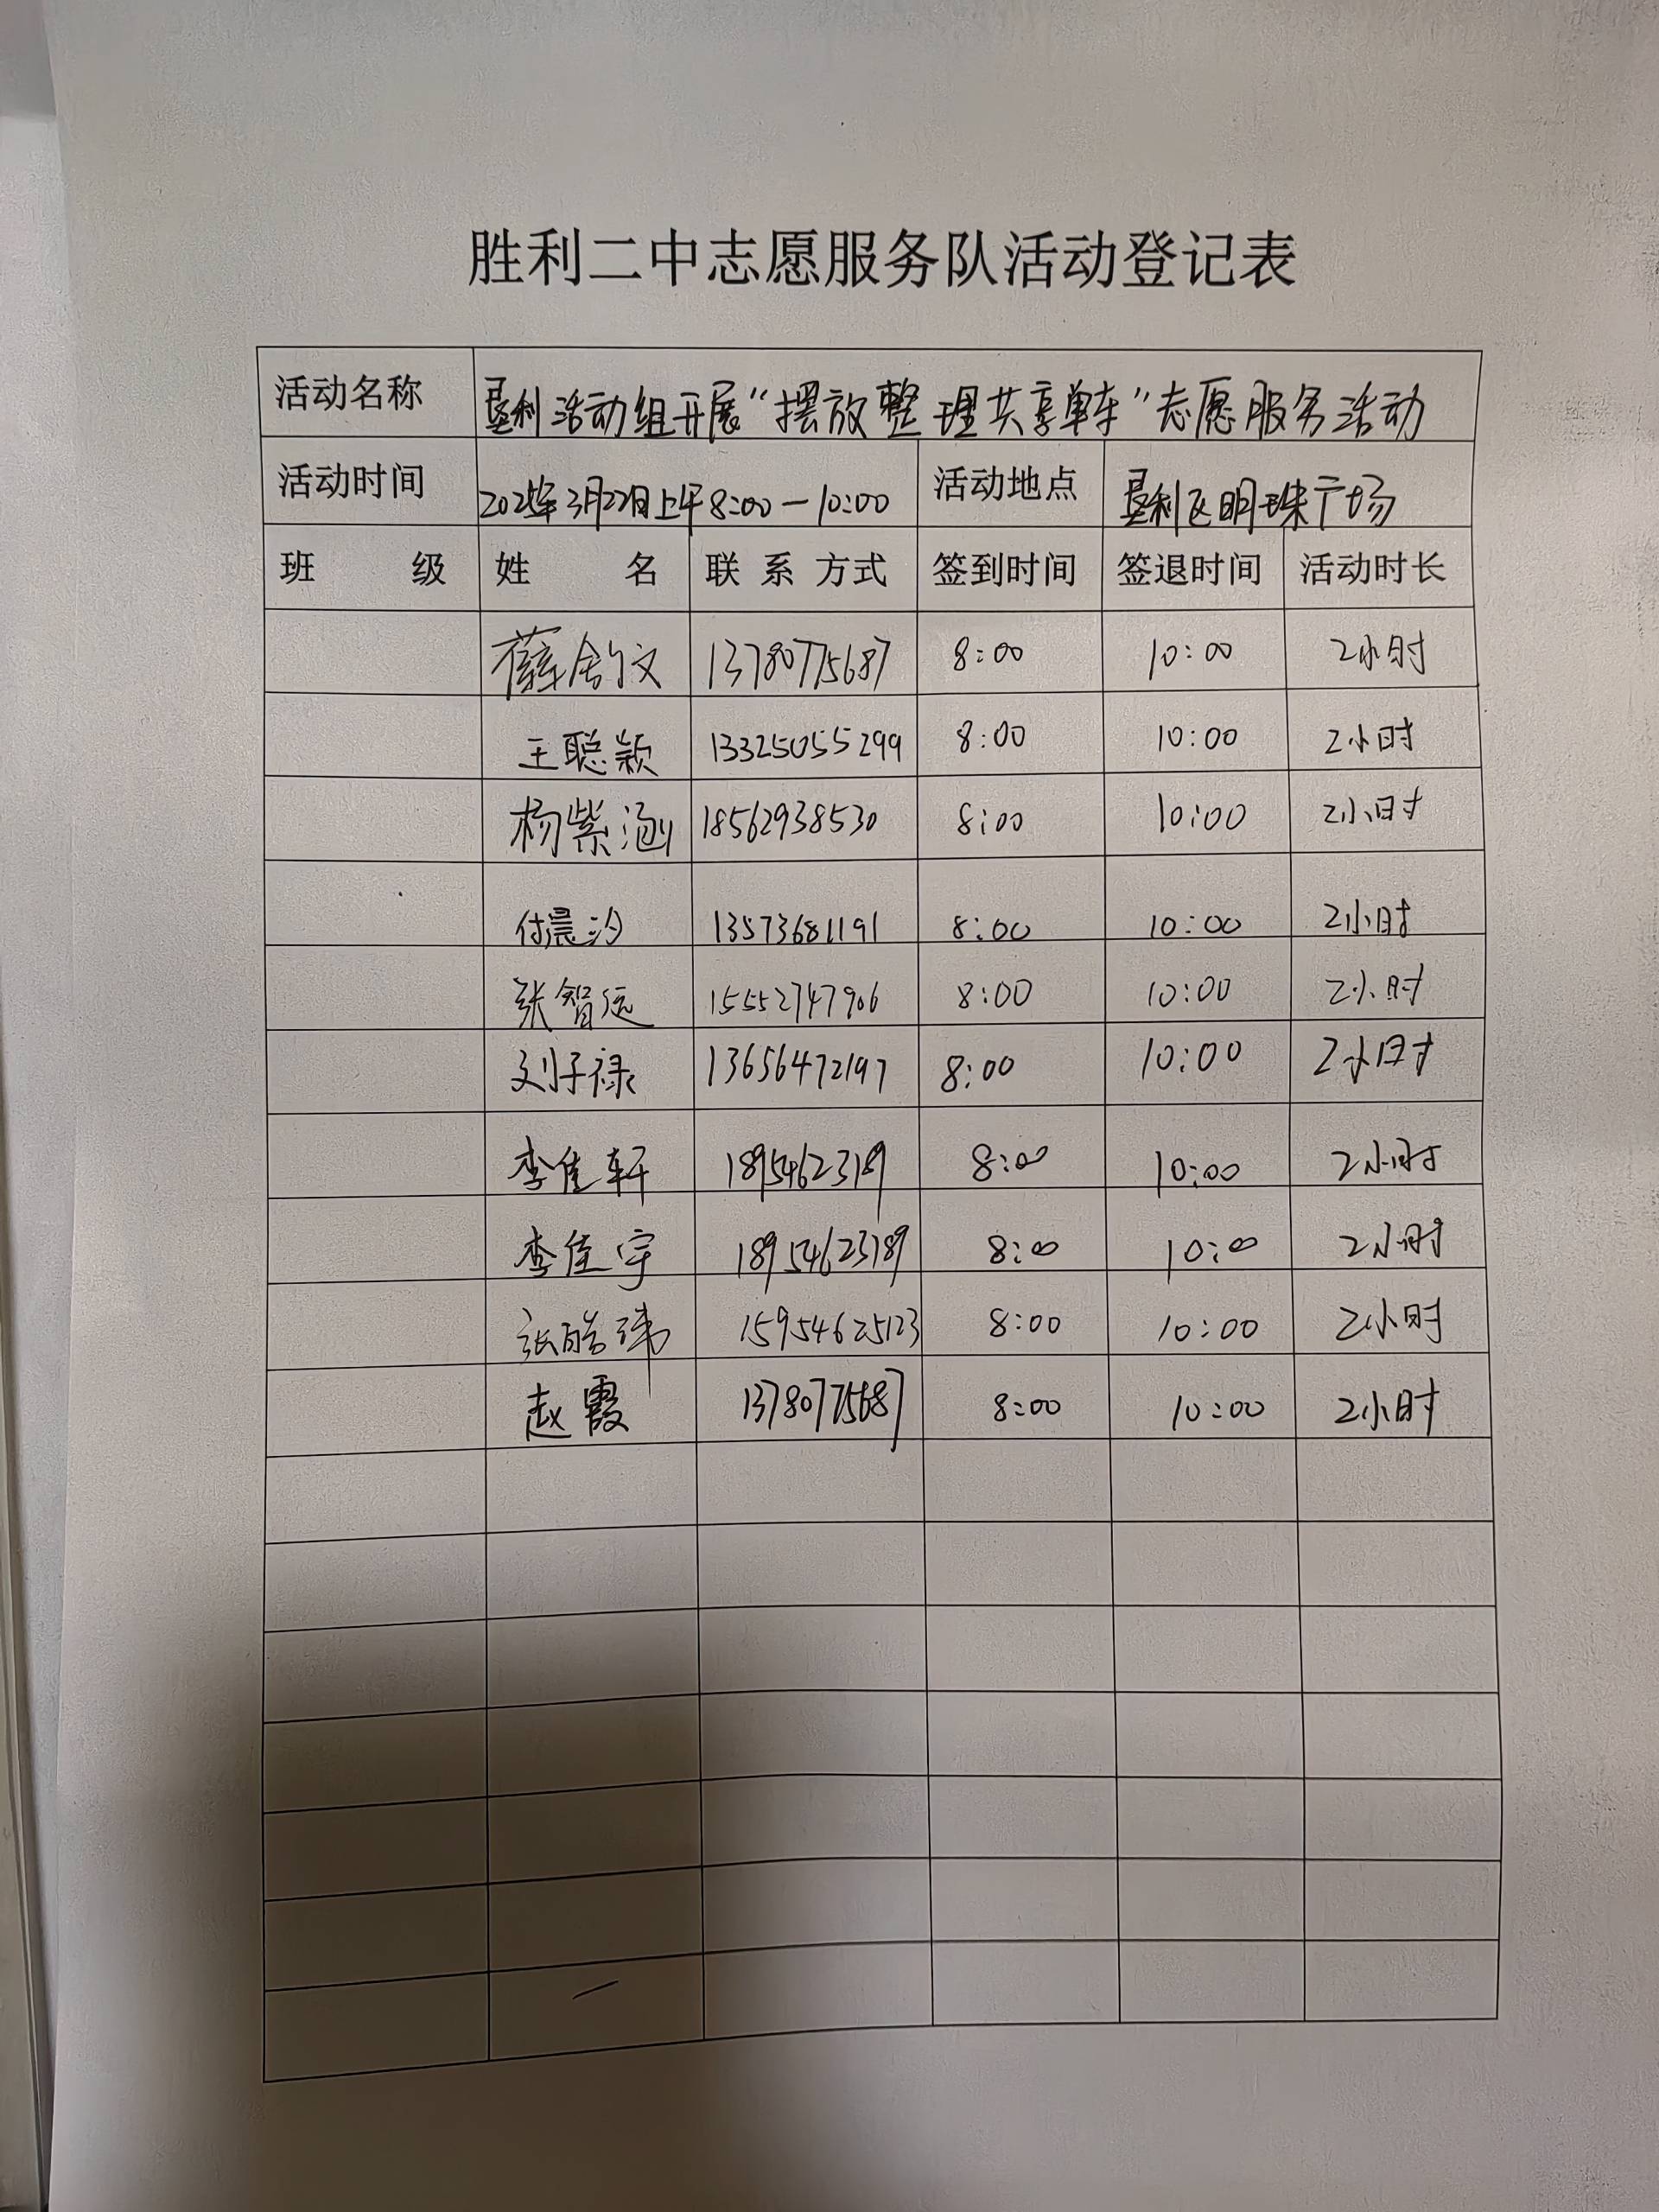 胜利二中志愿服务队活动登记表
活动名称 垦利活动组开展“摆放整理共享单车”志愿服务活动
活动时间 2025年3月22日上午8:00—10:00 活动地点 垦利区明珠广场
班 级 姓 名 联系方式 签到时间 签退时间 活动时长
薛舒文 13780775687 8:00 10:00 2小时
王聪颖 13325055299 8:00 10:00 2小时
杨紫涵 18562938530 8:00 10:00 2小时
付晨汐 13573681191 8:00 10:00 2小时
张智远 15552747906 8:00 10:00 2小时
刘子禄 13656472197 8:00 10:00 2小时
李佳轩 8:00 10:00 2小时
李佳宇 18954623789 8:00 10:00 2小时
张皓玮 15954625123 8:00 10:00 2小时
赵霞 13780775687 8:00 10:00 2小时